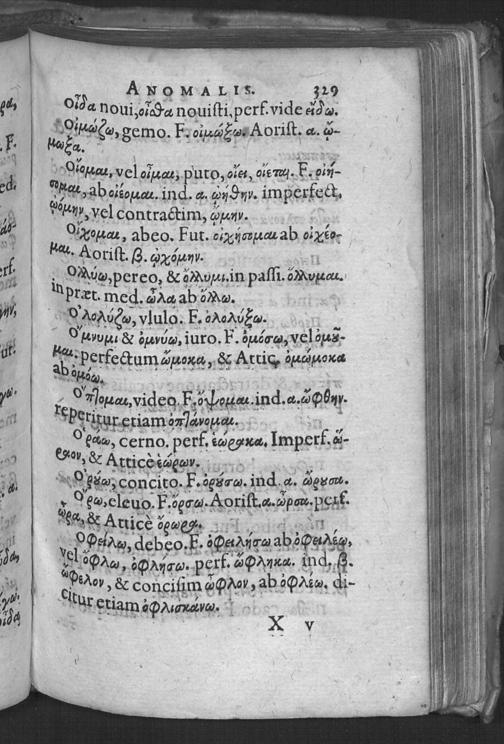 ANOMALIS. 329
Οἶδα noui, οἶσθα nouisti, perf. vide εἴδω.
Οἰμώζω, gemo. F. οἰμώξω. Aorist. α. ᾤ-
μωξα.
Οἴομαι, vel οἶμαι, puto, οἴει, οἴεται. F. οἰή-
σομαι, ab οἰέομαι. ind. α. ᾠήθην. imperfect,
ᾠόμην, vel contractim, ᾤμην.
Οἴχομαι, abeo. Fut. οἰχήσομαι ab οἰχέο-
μαι. Aorist. β. ᾠχόμην.
Ολλύω, pereo, & ὄλλυμι. in passi. ὄλλυμαι.
in præt. med. ὦλα ab ὄλλω.
Ὀλολύζω, vlulo. F. ὀλολύξω.
Ὄμνυμι & ὀμνύω, iuro. F. ὀμόσω, vel ὀμοῦ-
μαι: perfectum ὤμοκα, & Attic. ὀμώμοκα
ab ὀμόω.
Ὄπτομαι, video. F. ὄψομαι. ind. α. ὤφθην.
reperitur etiam ὀπτάνομαι.
Ὁράω, cerno. perf. ἑώρακα, Imperf. ὥ-
ραον, & Atticè ἑώρων.
Ὀρύω, concito. F. ὀρύσω. ind. α. ὤρυσα.
Ὄρω, eleuo. F. ὄρσω. Aorist. α. ὦρσα. perf.
ὦρα, & Atticè ὄρωρα.
Οφείλω, debeo. F. ὀφειλήσω ab ὀφειλέω,
vel ὄφλω, ὀφλήσω. perf. ὤφληκα. ind. β.
ὤφελον, & concisim ὦφλον, ab ὀφλέω. di-
citur etiam ὀφλισκάνω.
X v